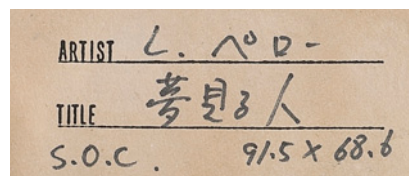 ARTIST L. ペロー
TITLE 夢見る人
S.O.C. 91.5 × 68.6